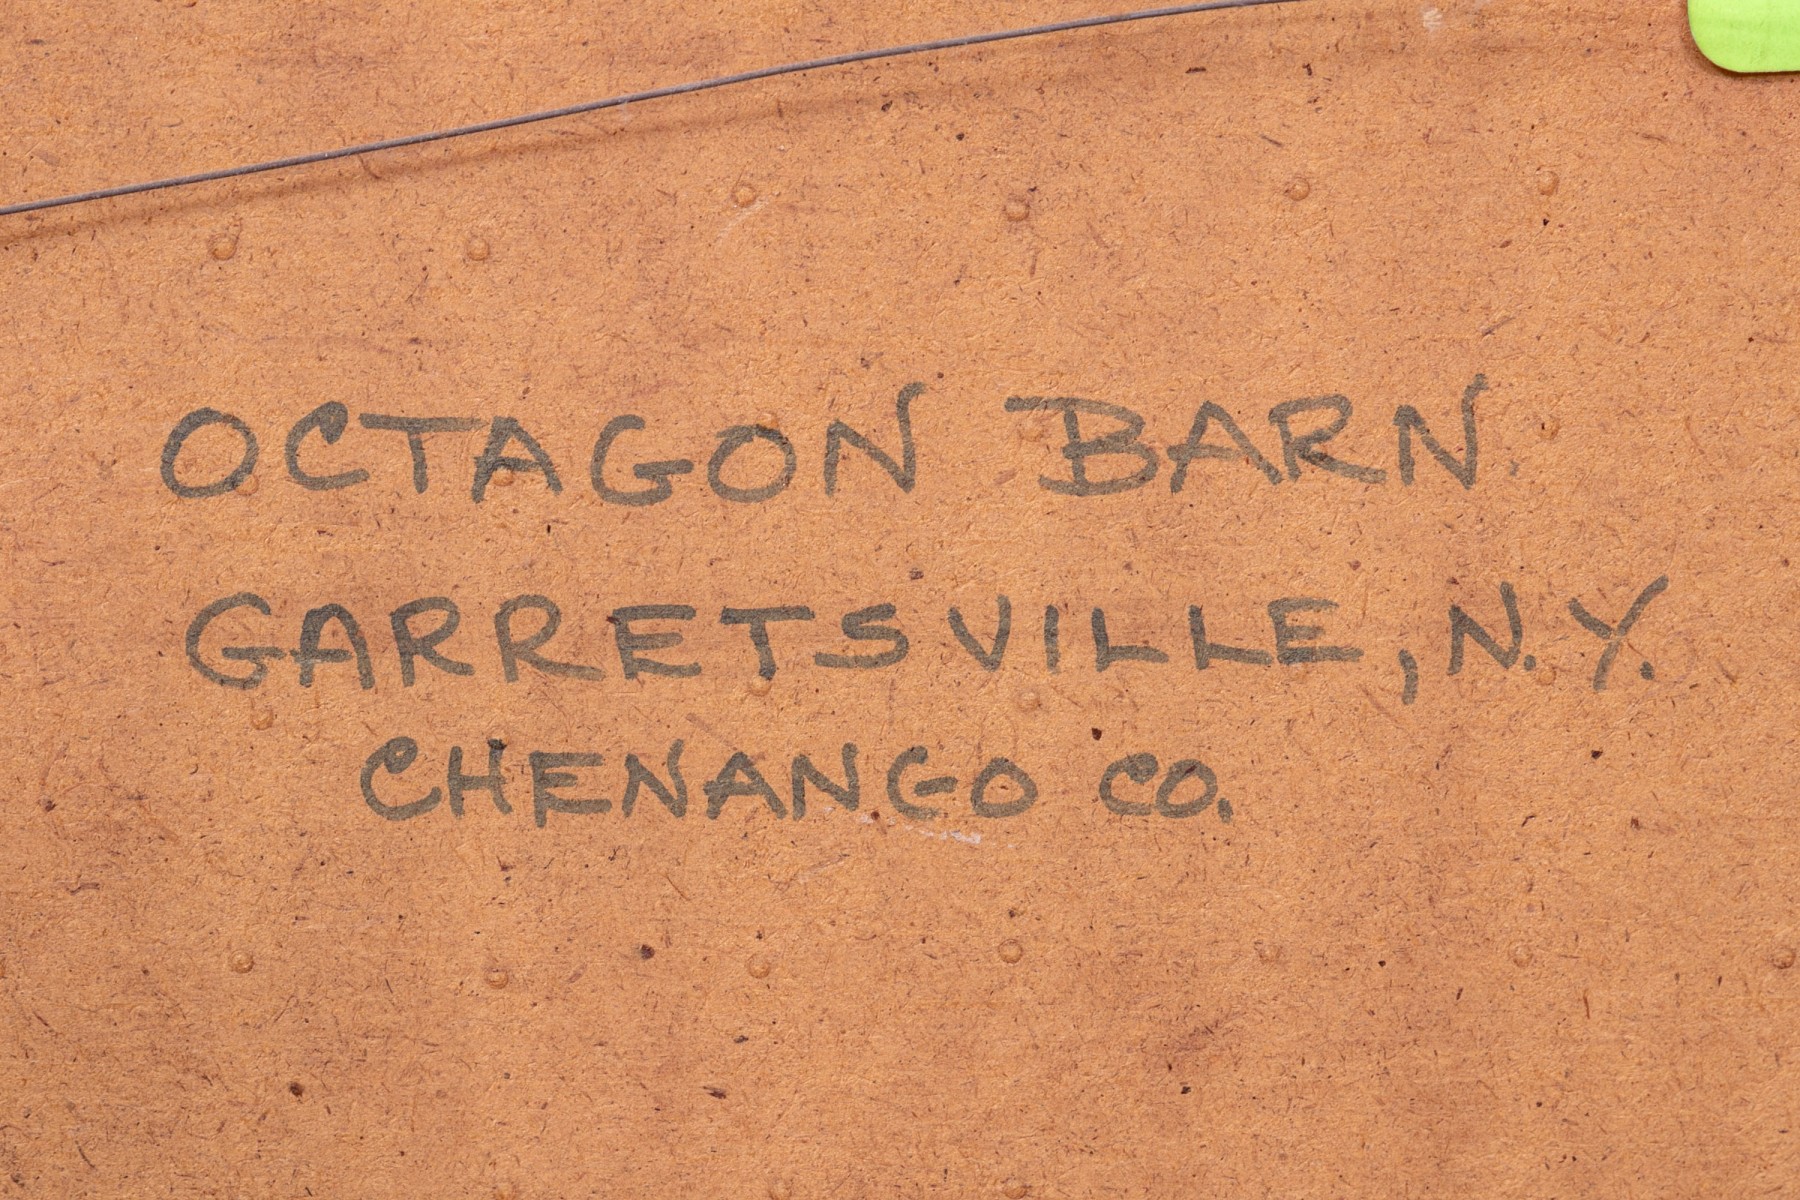 OCTAGON BARN
GARRETSVILLE, N.Y.
CHENANGO CO.